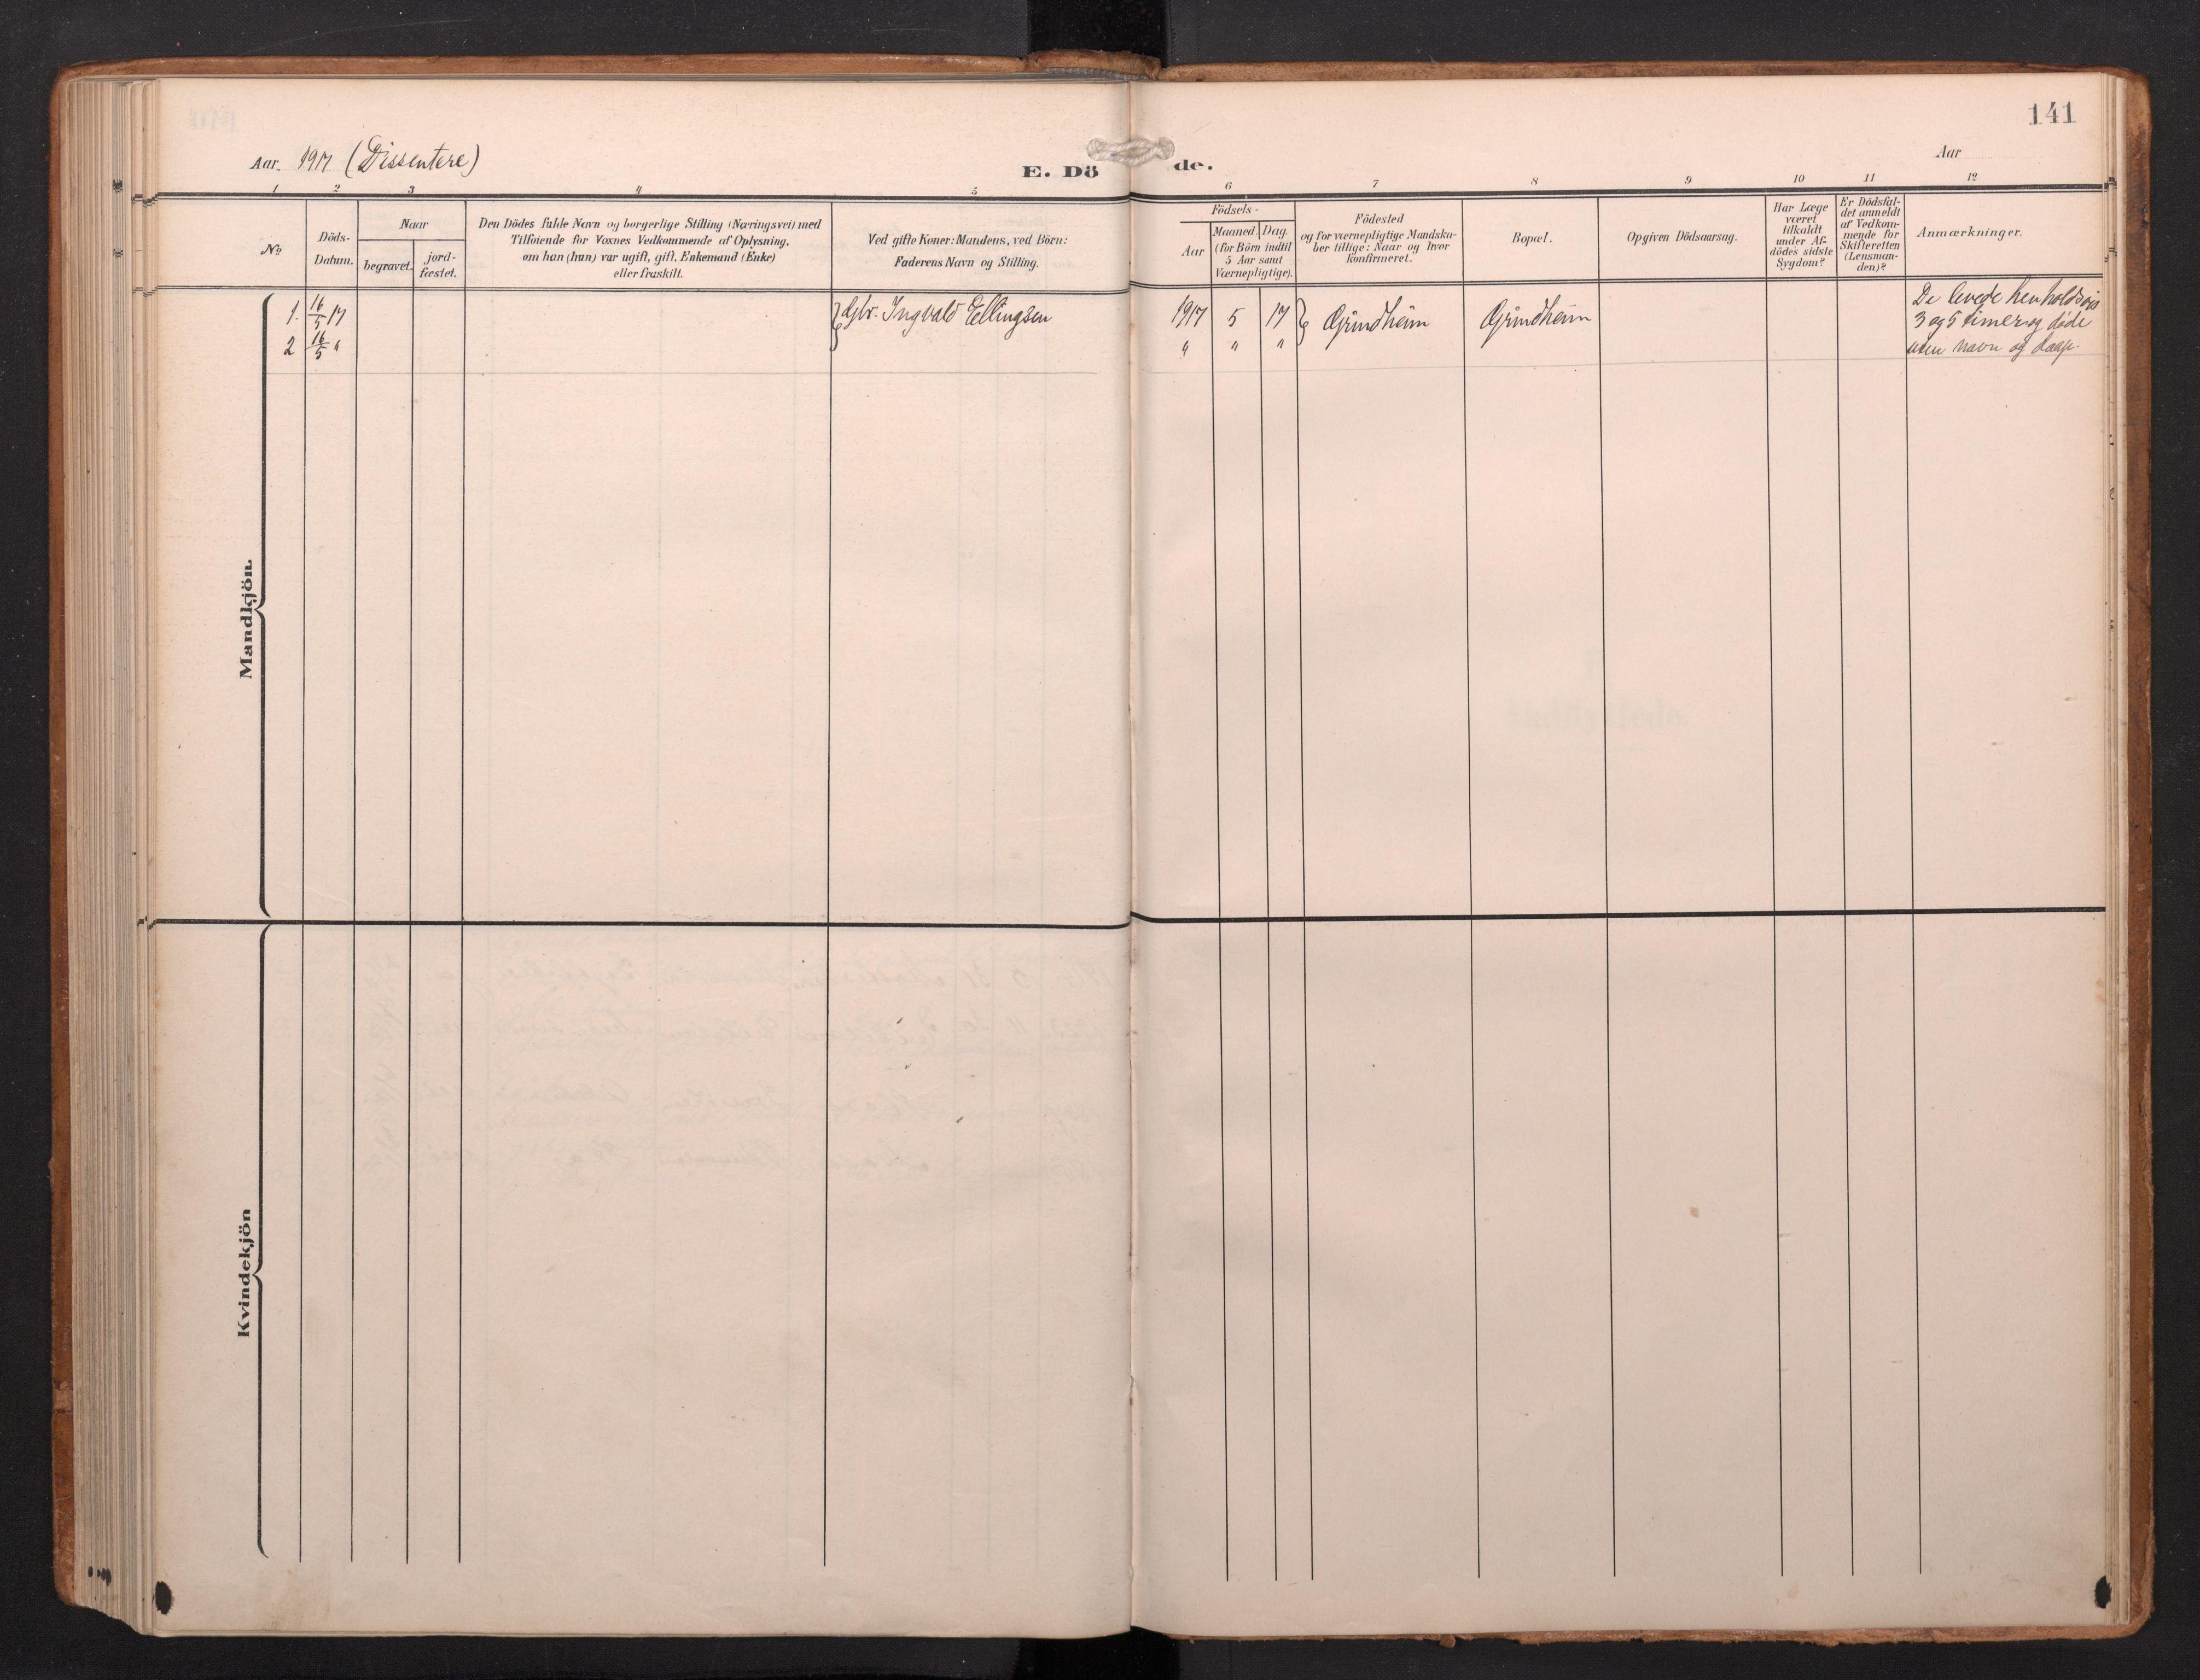 141
Aar. 1917 (Dissentere)
E. Dö de.
Aar
1 2 3 4 5 6 7 8 9 10 11 12
No
Döds-
Datum.
Naar
begravet.
jord-
fæstet.
Den Dödes fulde Navn og borgerlige Stilling (Næringsvei) med
Tilföiende for Voxnes Vedkommende af Oplysning,
om han (hun) var ugift, gift, Enkemand (Enke)
eller fraskilt.
Ved gifte Koner: Mandens, ved Börn:
Faderens Navn og Stilling.
Födsels-
Aar
Maaned. Dag.
(for Börn indtil
5 Aar samt
Værnepligtige).
Födested
og for værnepligtige Mandska-
ber tillige: Naar og hvor
konfirmeret.
Bopæl.
Opgiven Dödsaarsag.
Har Læge
været
tilkaldt
under Af-
dödes sidste
Sygdom?
Er Dödsfal-
det anmeldt
af Vedkom-
mende for
Skifteretten
(Lensman-
den)?
Anmærkninger.
Mandkjön.
1. 16/5 17 Gbr. Ingvald Ellingsen 1917 5 17 Grindheim Grindheim
2 16/5 " " " "
De levede henholdsvis
3 og 5 timer og døde
uten navn og daap.
Kvindekjön